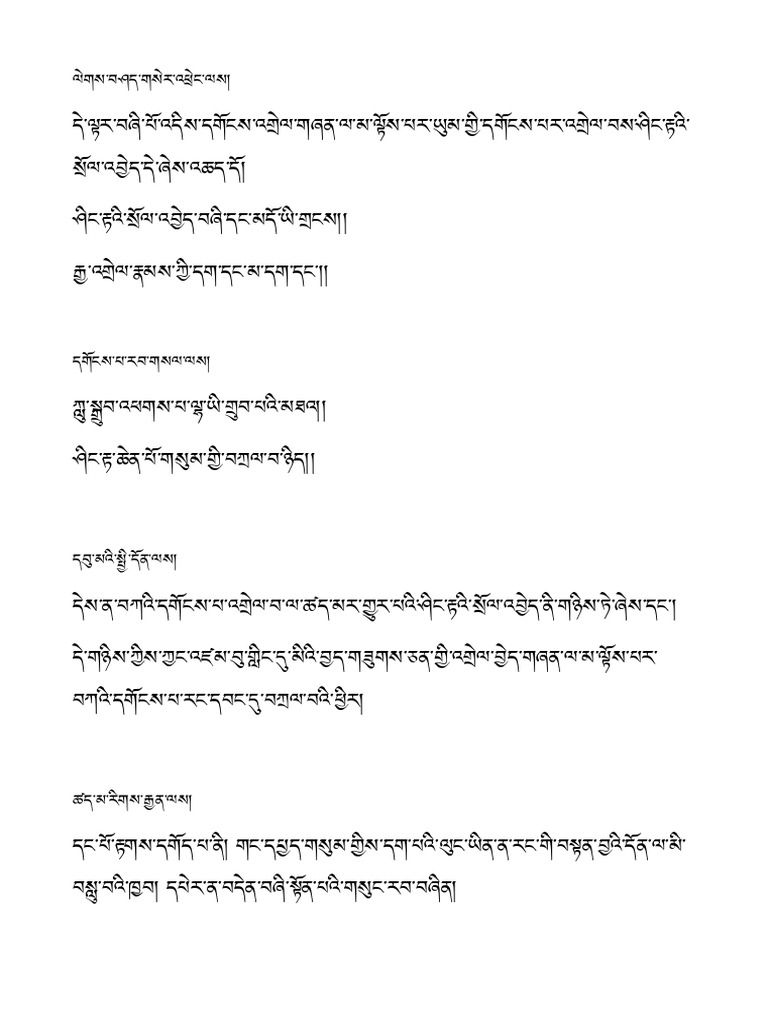 ལེགས་བཤད་གསེར་འཕྲེང་ལས།
དེ་ལྟར་བཞི་པོ་འདིས་དགོངས་འགྲེལ་གཞན་ལ་མ་ལྟོས་པར་ཡུམ་གྱི་དགོངས་པར་འགྲེལ་བས་ཤིང་རྟའི་
སྲོལ་འབྱེད་དེ་ཞེས་འཆད་དོ།
ཤིང་རྟའི་སྲོལ་འབྱེད་བཞི་དང་མདོ་ཡི་གྲངས།།
རྒྱ་འགྲེལ་རྣམས་ཀྱི་དག་དང་མ་དག་དང་།།
དགོངས་པ་རབ་གསལ་ལས།
ཀླུ་སྒྲུབ་འཕགས་པ་ལྷ་ཡི་གྲུབ་པའི་མཐའ།།
ཤིང་རྟ་ཆེན་པོ་གསུམ་གྱི་བཀྲལ་བ་ཉིད།།
དབུ་མའི་སྤྱི་དོན་ལས།
དེས་ན་བཀའི་དགོངས་པ་འགྲེལ་བ་ལ་ཚད་མར་གྱུར་པའི་ཤིང་རྟའི་སྲོལ་འབྱེད་ནི་གཉིས་ཏེ་ཞེས་དང་།
དེ་གཉིས་ཀྱིས་ཀྱང་འཛམ་བུ་གླིང་དུ་མིའི་བྱད་གཟུགས་ཅན་གྱི་འགྲེལ་བྱེད་གཞན་ལ་མ་ལྟོས་པར་
བཀའི་དགོངས་པ་རང་དབང་དུ་བཀྲལ་བའི་ཕྱིར།
ཚད་མ་རིགས་རྒྱན་ལས།
དང་པོ་རྟགས་དགོད་པ་ནི། གང་དཔྱད་གསུམ་གྱིས་དག་པའི་ལུང་ཡིན་ན་རང་གི་བསྟན་བྱའི་དོན་ལ་མི་
བསླུ་བའི་ཁྱབ། དཔེར་ན་བདེན་བཞི་སྟོན་པའི་གསུང་རབ་བཞིན།